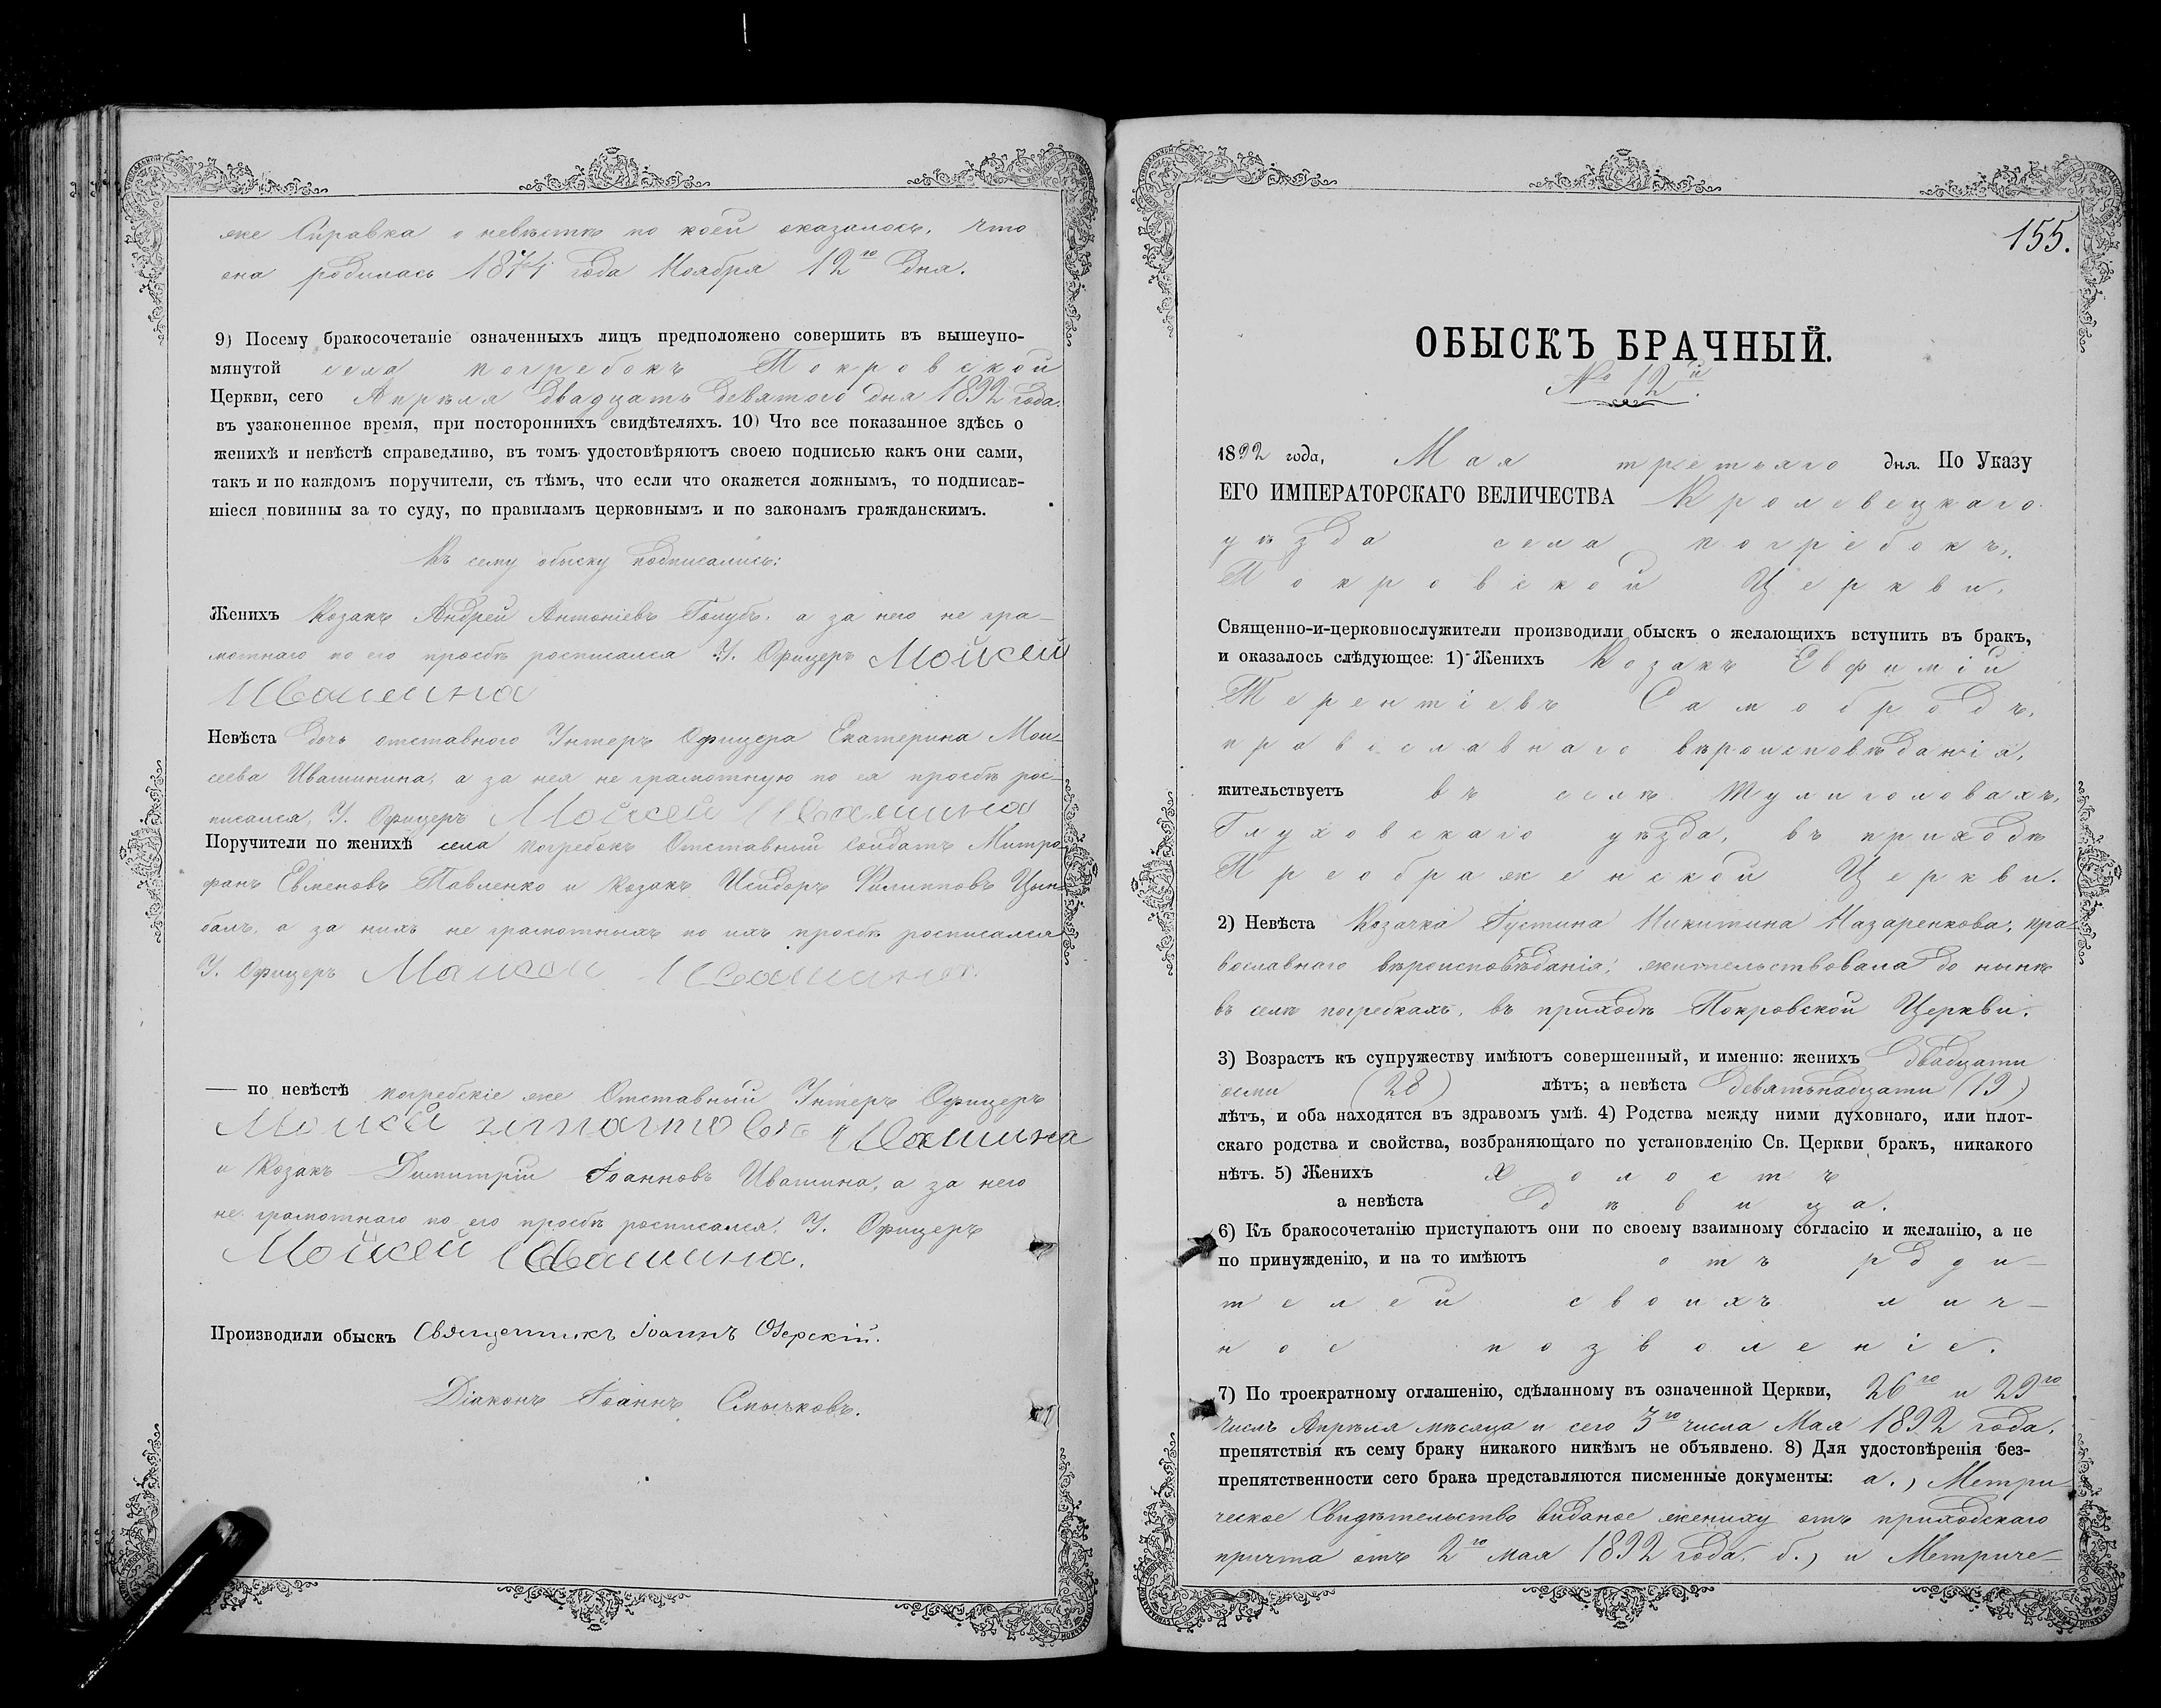 же Справка о невѣстѣ по коей оказалось, что
она родилась 1874 года Ноября 12го дня.
9) Посему бракосочетаніе означенныхъ лицъ предположено совершить въ вышеупо-
мянутой села Погребокъ Покровской
Церкви, сего Апрѣля двадцать девятого дня 1892 года.
въ узаконенное время, при постороннихъ свидѣтеляхъ. 10) Что все показанное здѣсь о
женихѣ и невѣстѣ справедливо, въ томъ удостовѣряютъ своею подписью какъ они сами,
такъ и по каждомъ поручители, съ тѣмъ, что если что окажется ложнымъ, то подписав-
шіеся повинны за то суду, по правиламъ церковнымъ и по законамъ гражданскимъ.
Къ сему обыску подписались:
Женихъ Козакъ Андрей Антоніевъ Голубъ, а за него не гра-
мотнаго по его просьбѣ росписался У. Офицеръ Мойсей
Ивашина
Невѣста дочь отставного Унтеръ Офицера Екатерина Мои-
сеева Ивашинина, а за нея не грамотную по ея просьбѣ рос-
писался, У. Офицеръ Мойсей Ивашина
Поручители по женихѣ села Погребокъ Отставный Солдатъ Митро-
фанъ Евменовъ Павленко и Козакъ Исидоръ Филипповъ Цын-
балъ, а за нихъ не грамотныхъ по ихъ просьбѣ росписался
У. Офицеръ Мойсей Ивашина.
— по невѣстѣ Погребскіе же Отставный Унтеръ Офицеръ
Мойсей Игнатовъ Ивашина
и Козакъ Димитрій Іоанновъ Ивашина, а за него
не грамотнаго по его просьбѣ росписался, У. Офицеръ
Мойсей Ивашина.
Производили обыскъ Священникъ Іоаннъ Озерскій.
Діаконъ Іоаннъ Смычковъ.
155.
ОБЫСКЪ БРАЧНЫЙ.
№ 12й.
1892 года, Мая третьяго дня. По Указу
ЕГО ИМПЕРАТОРСКАГО ВЕЛИЧЕСТВА Кролевецкаго
уѣзда села Погребокъ,
Покровской Церкви,
Священно-и-церковнослужители производили обыскъ о желающихъ вступить въ бракъ,
и оказалось слѣдующее: 1) Женихъ Козакъ Евфимій
Терентіевъ Самобродъ,
православнаго вѣроисповѣданія,
жительствуетъ въ селѣ Тулиголовахъ,
Глуховскаго уѣзда, въ приходѣ
Преображенской Церкви.
2) Невѣста Козачка Іустина Никитина Назаренкова, пра-
вославнаго вѣроисповѣданія, жительствовала до нынѣ
въ селѣ Погребкахъ, въ приходѣ Покровской Церкви.
3) Возрастъ къ супружеству имѣютъ совершенный, и именно: женихъ двадцати
осми (28) лѣтъ; а невѣста девятьнадцати (19)
лѣтъ, и оба находятся въ здравомъ умѣ. 4) Родства между ними духовнаго, или плот-
скаго родства и свойства, возбраняющаго по установленію Св. Церкви бракъ, никакого
нѣтъ. 5) Женихъ холостъ
а невѣста дѣвица.
6) Къ бракосочетанію приступаютъ они по своему взаимному согласію и желанію, а не
по принужденію, и на то имѣютъ отъ роди-
телей своихъ лич-
ное позволеніе.
7) По троекратному оглашенію, сдѣланному въ означенной Церкви, 26го и 29го
числъ Апрѣля мѣсяца и сего 3го числа Мая 1892 года,
препятствія къ сему браку никакого никѣмъ не объявлено. 8) Для удостовѣренія без-
препятственности сего брака представляются писменные документы: а.) Метри-
ческое Свидѣтельство виданое жениху отъ приходскаго
причта отъ 2го мая 1892 года, б.) и Метриче-